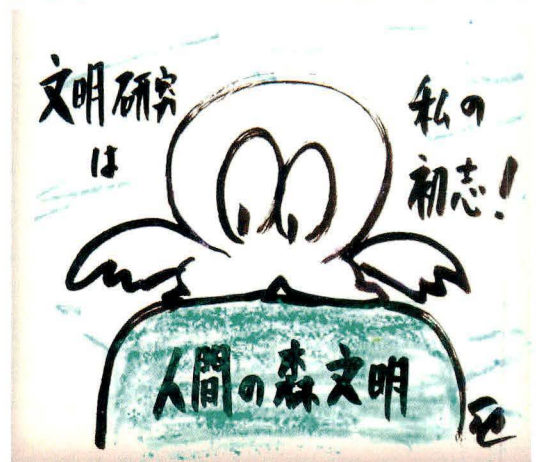 文明研究
は
私の
初志!
人間の森文明